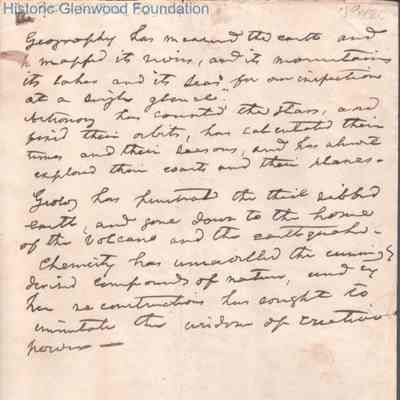 Historic Glenwood Foundation
Geography has measured the earth and
mapped its rivers, and its mountains
its lakes and its seas for our inspection
at a single glance.
Astronomy has counted the stars, and
fixed their orbits, has calculated their
times and their seasons, and has almost
explored their coasts and their shores.
Geology has penetrated the thick ribbed
earth, and gone down to the home
of the Volcano and the earthquake.
Chemistry has unravelled the cunningly
devised compounds of nature, and by
her reconstructions has sought to
immitate the wisdom of creative
power —